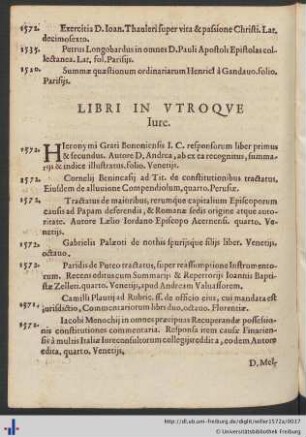 1572. Exercitia D. Ioan. Thauleri super vita & passione Christi. Lat.
decimosexto.
1535. Petrus Longobardus in omnes D. Pauli Apostoli Epistolas col-
lectanea. Lat. fol. Parisijs.
1520. Summæ quæstionum ordinariarum Henrici à Gandauo. folio.
Parisijs.
LIBRI IN VTROQVE
Iure.
1572. HIeronymi Grati Bononiensis I. C. responsorum liber primus
& secundus. Autore D, Andrea, ab ex ea recognitus, summa-
rijs & indice illustratus. folio. Venetijs.
1572. Cornelij Benincasij ad Tit. de constitutionibus tractatus.
Eiusdem de alluuione Compendiolum, quarto. Perusiæ.
1572. Tractatus de maioribus, rerumque capitalium Episcoporum
causis ad Papam deferendis, & Romanæ sedis origine atque autho-
ritate. Autore Lælio Iordano Episcopo Acernensi. quarto. Ve-
netijs.
1572. Gabrielis Palæoti de nothis spurijsque filijs liber. Venetijs,
octauo,
1573. Paridis de Puteo tractatus, super reassumptione Instrumento-
rum. Recens editus cum Summarijs & Repertorijs Ioannis Bapti-
stæ Zelleti. quarto. Venetijs, apud Andream Valuassorem.
Camilli Plautij ad Rubric. ff. de officio eius, cui mandata est
1571. iurisdictio, Commentariorum libri duo, octauo. Florentiæ.
Iacobi Menochij in omnes præcipuas Recuperandæ possessio-
1571. nis constitutiones commentaria. Responsa item causæ Finarien-
sis à multis Italiæ Iureconsultorum collegijs reddita, eodem Autore
edita, quarto. Venetijs,
D. Mel-
http://dl.ub.uni-freiburg.de/diglit/weller1572a/0017
© Universitätsbibliothek Freiburg